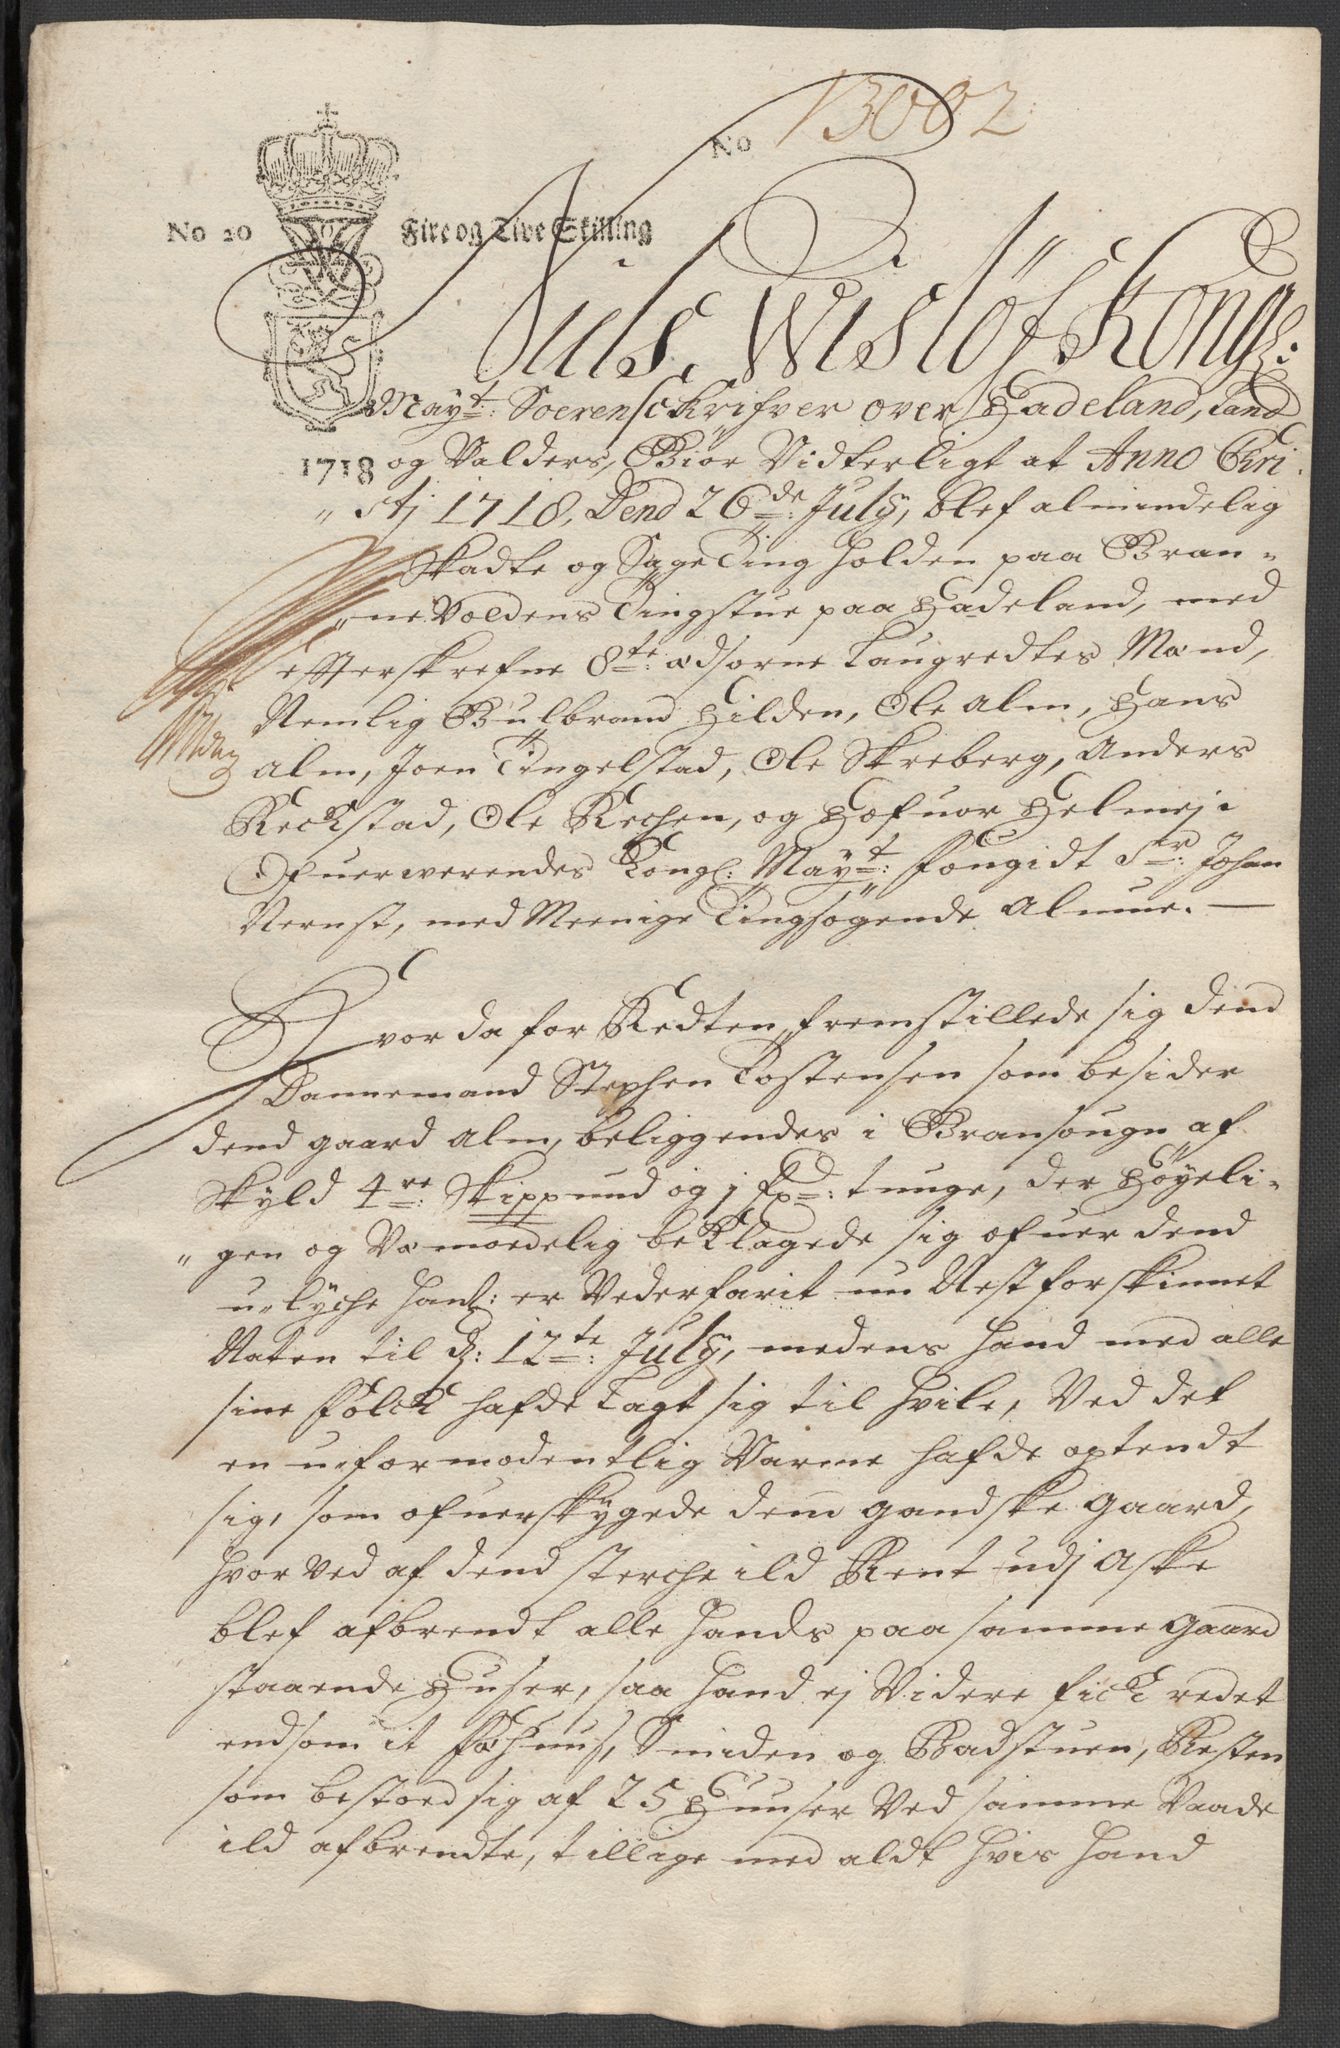 No 13002
No 20 Fire og Tive Skilling
Juls Wislöf Kongl:
Mayt: Sorenschrifver over Hadeland, Land
1718 og Valders, Giör Vidterligt at Anno Chri-
"stj 1718, Dend 26de: July, blef almindelig
Skatte og Sage Ting holden paa Bran-
"ne Voldens Tingstue paa Hadeland, med
efterskrefne 8te: Edsorne Laugrettes Mænd,
Nemlig Gulbrand Hilden, Ole Alm, Hans
Alm, Joen Tingelstad, Ole Skreberg, Anders
Reckstad, Ole Kechen, og Hofuor Helmej.
Ofuerwerendes Kongl: Mayt: fougidt Sr: Johan
Nernst, med Meenige Tingsøgende Almue.
Hvor da for Retten, fremstillede sig dend
Dannemand Stephen Tostensen som besider
dend gaard Alm, beliggendes i Bransougn af
Skyld 4re: Skippund og j fxd: tunge, der Høyeli-
"gen og Væmoedelig beklagede sig ofuer dend
u-lyche hanl: er Vederfarit nu Nestforskinnet
Naten til d: 12te: July, medens hand med alle
sine Folck hafde Lagt sig til hvile, Ved det
en uformodentlig Varme hafde optendt
sig, som ofuerskygede dend gandske gaard,
hvor ved af dend sterche ild Rent udj Aske
blef afbrendt alle hands paa samme gaard
staaende Huser, saa hand ej Videre fick redet
endsom it Fæhuus, Smiden og Badstuen, Resten
som bestoed sig af 25 Huuser Ved samme Vaade
ild afbrendte, tillige med aldt hvis hand